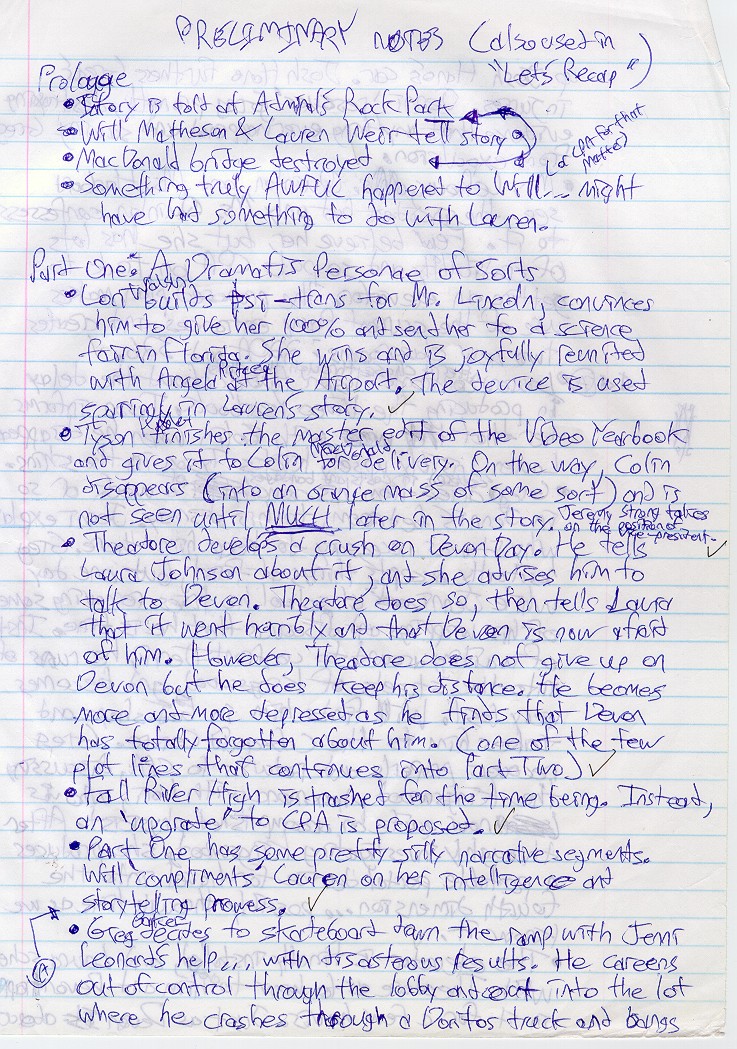 PRELIMINARY NOTES (also used in
"Let's Recap")
Prologue
• Story is told at Admiral's Rock Park
• Will Matheson & Lauren Weir tell story
• MacDonald bridge destroyed
(or CPA for that
matter)
• Something truly AWFUL happened to Will... might
have had something to do with Lauren.
Part One: A Dramatis Personae of Sorts
• Lori builds psi-trans for Mr. Lincoln, convinces
him to give her 100% and send her to a science
fair in Florida. She wins and is joyfully reunited
with Angela at the Airport. The device is used
sparingly in Lauren's story. ✓
• Tyson finishes the master edit of the Video Yearbook
and gives it to Colin MacDonald for delivery. On the way, Colin
disappears (into an orange mass of some sort) and is
not seen until MUCH later in the story. Jeremy Strong takes
on the position of
vice-president. ✓
• Theodore develops a crush on Devon Day. He tells
Laura Johnson about it, and she advises him to
talk to Devon. Theodore does so, then tells Laura
that it went horribly and that Devon is now afraid
of him. However, Theodore does not give up on
Devon but he does keep his distance. He becomes
more and more depressed as he finds that Devon
has totally forgotten about him. (one of the few
plot lines that continues into Part Two) ✓
• Fall River High is trashed for the time being. Instead,
an "upgrade" to CPA is proposed. ✓
• Part One has some pretty silly narrative segments.
Will "compliments" Lauren on her intelligence and
storytelling prowess. ✓
• Greg decides to skateboard down the ramp with Jemi
Leonard's help... with disasterous results. He careens
out of control through the lobby and out into the lot
where he crashes through a Doritos truck and bangs